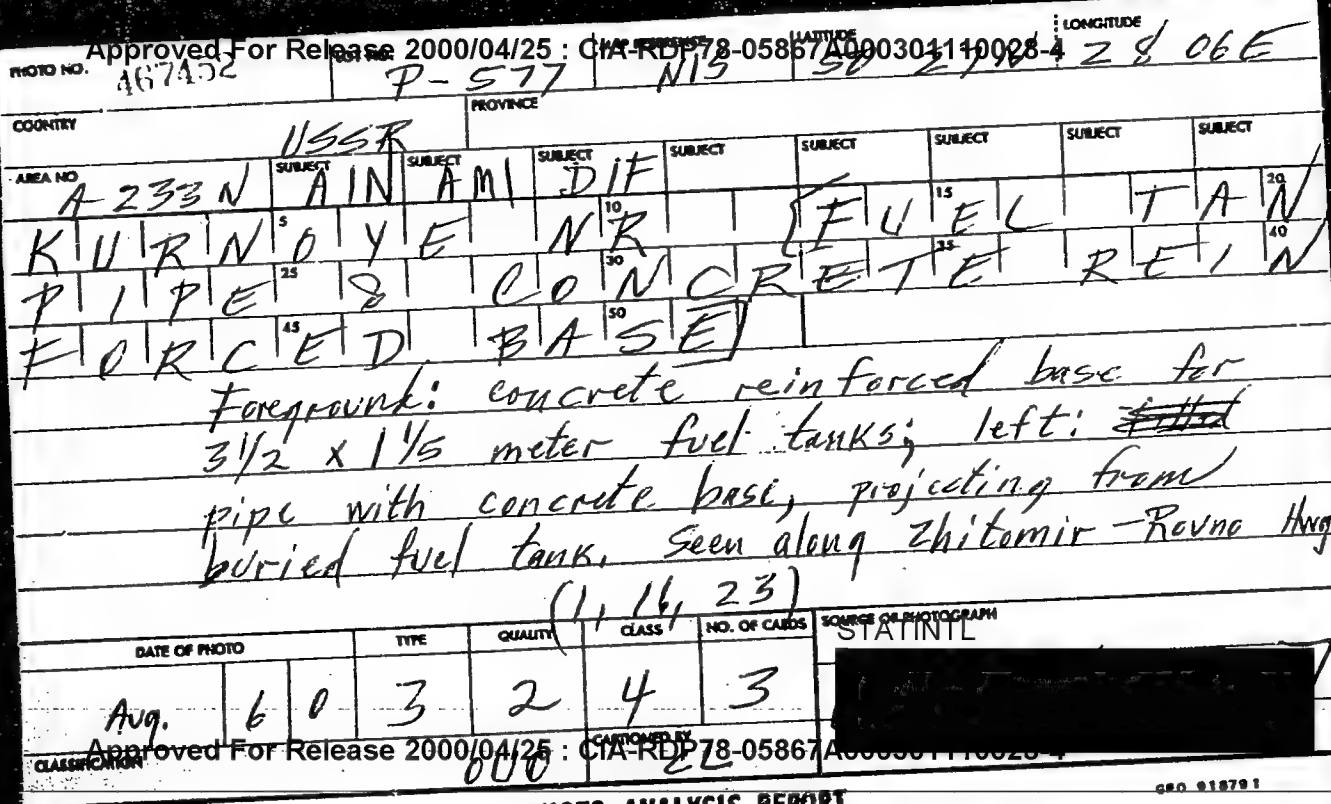 Approved For Release 2000/04/25 : CIA-RDP78-05867A000301110028-4
PHOTO NO. 467452 LOT NO. P-577 MAP REFERENCE NIS LATITUDE 50 27N LONGITUDE 28 06E
COUNTRY USSR PROVINCE
AREA NO A-233N SUBJECT AIN SUBJECT AMI SUBJECT DIF SUBJECT SUBJECT SUBJECT SUBJECT SUBJECT
KURNOYE NR (FUEL TAN
PIPE & CONCRETE REIN
FORCED BASE)
5 10 15 20 25 30 35 40 45 50
Foreground: concrete reinforced base for
3 1/2 x 1 1/5 meter fuel tanks; left:
pipe with concrete base, projecting from
buried fuel tank. Seen along Zhitomir-Rovno Hwy
(1, 16, 23)
DATE OF PHOTO TYPE QUALITY CLASS NO. OF CARDS SOURCE OF PHOTOGRAPH
STATINTL
Aug. 6 0 3 2 4 3
Approved For Release 2000/04/25 : CIA-RDP78-05867A000301110028-4
CLASSIFICATION CAPTIONED BY
PHOTO ANALYSIS REPORT
GPO 918791